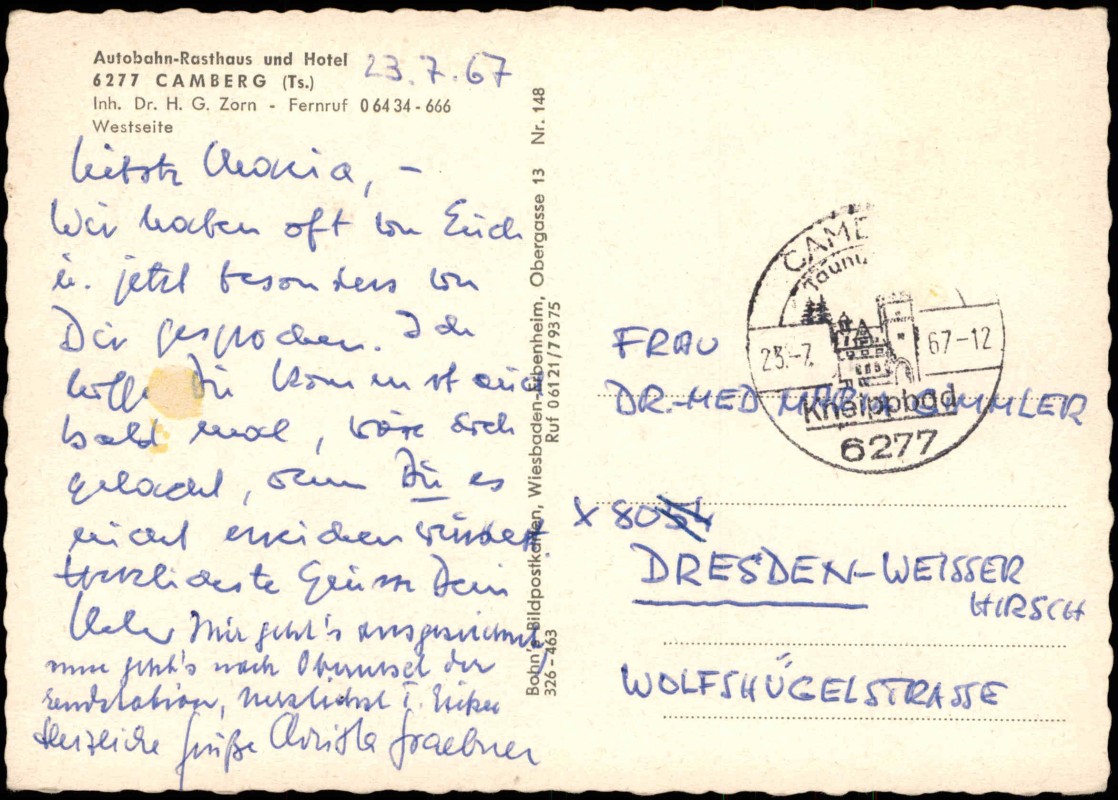 Autobahn-Rasthaus und Hotel
6277 CAMBERG (Ts.)
Inh. Dr. H. G. Zorn - Fernruf 06434-666
Westseite
23.7.67
Maria, -
Wir haben oft von Euch
u. jetzt besonders von
Dir gesprochen. Ich
hoffe Du kommst auch
bald mal, wäre doch
gelacht, wenn Du es
nicht erreichen würdest.
Herzlichste Grüsse Dein
Mir geht's ausgezeichnet,
nun geht's nach Oberursel der
Endstation, herzlichst
Herzliche Grüße Christa Graebner
Bohn's Bildpostkarten, Wiesbaden-Erbenheim, Obergasse 13 Nr. 148
Ruf 06121/79375
326-463
CAMB
Taunu
23.-7. 67-12
Kneippbad
6277
FRAU
DR.-MED MARIA GÜMMLER
X 8054
DRESDEN-WEISSER
HIRSCH
WOLFSHÜGELSTRASSE